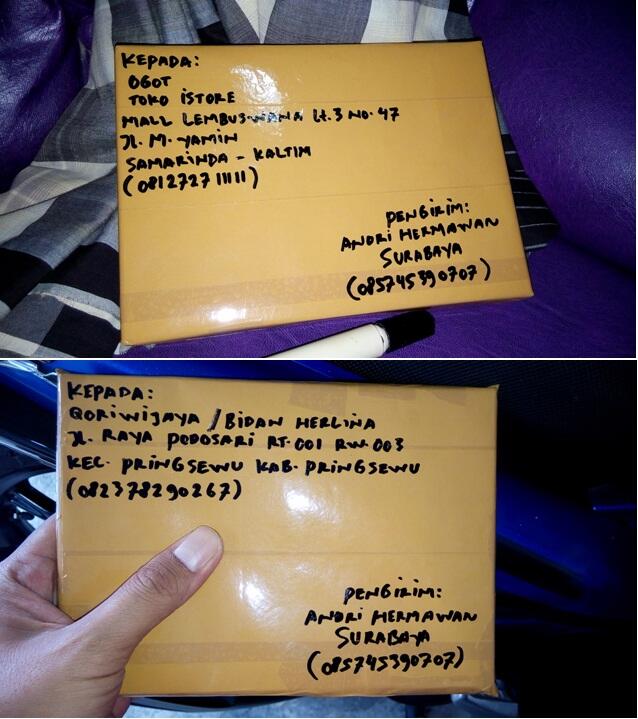 KEPADA:
OGOT
TOKO ISTORE
MALL LEMBUSWANA Lt.3 NO. 47
Jl. M. YAMIN
SAMARINDA - KALTIM
(081272711111)
PENGIRIM:
ANDRI HERMAWAN
SURABAYA
(085745390707)
KEPADA:
QORIWIJAYA / BIDAN HERLINA
Jl. RAYA PODOSARI RT.001 RW.003
KEC. PRINGSEWU KAB. PRINGSEWU
(082378290267)
PENGIRIM:
ANDRI HERMAWAN
SURABAYA
(085745390707)